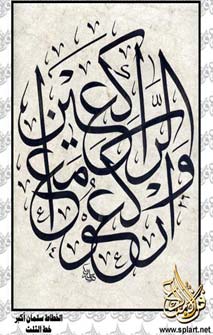 واركعوا مع الراكعين
الخطاط سلمان أكبر
خط الثلث
www.splart.net